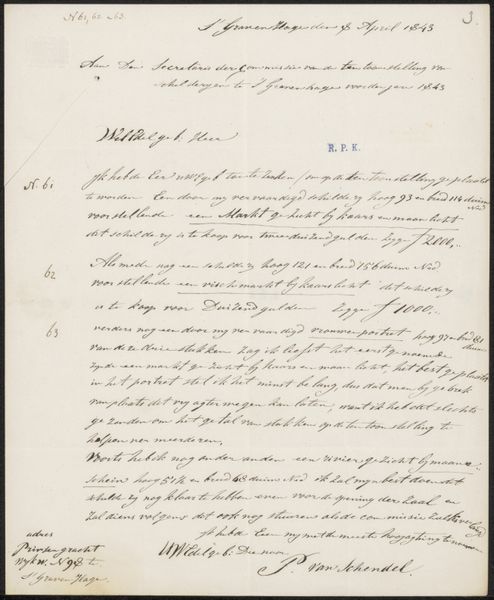 N. 61, 62 63.
3.
S' Gravenhage den 8 April 1843
Aan Den Secretaris der Commissie van de ten toonstelling van
schilderyen te S' Gravenhage voor den jare 1843
WelEdelgeb. Heer
R. P. K.
N. 61
Ik heb de Eer UWEgeb toe te zenden / om op de ten toonstelling geplaatst
te worden Een door my vervaardigd schildery hoog 93 en breed 114 duim
Ned
voorstellende een Markt gezicht by kaars en maan licht
dit schildery is te koop voor twee duizend gulden Zegge ƒ 2000,-
62
Als mede nog een schildery hoog 121 en breed 156 duim Ned
voorstellende een vischmarkt by kaarslicht dit schildery
is te koop voor Duizend gulden Zegge ƒ 1000,-
63
verders nog een door my vervaardigd vrouwe portret hoog 97 en breed 81
duim
van deze drie stukken zag ik liefst het eerst genoemde
zynde een markt gezicht by kaars en maan licht, het best geplaatst
in het portret stel ik het minst belang, dus dat men by gebrek
van plaats dit vry agterwegen kan laten, want ik heb dit slechts
gezonden om het getal van stukken op de ten toonstelling te
helpen vermeerderen.
Voorts heb ik nog onder anden een rivier gezicht by maane
schein hoog 51½ en breed 68 duim Ned ik zal myn best doen dit
schildery nog klaar te hebben even voor de opening der Zaal en
zal diens volgens dit ook nog sturen als de commissie
Ik heb de Eer my met de meeste hoogachting te noemen
UWEdelgeb. Dienaar
P. van Schendel.
adres
Prinsengracht
wyk W. N 98 te
S' Graven Hage.